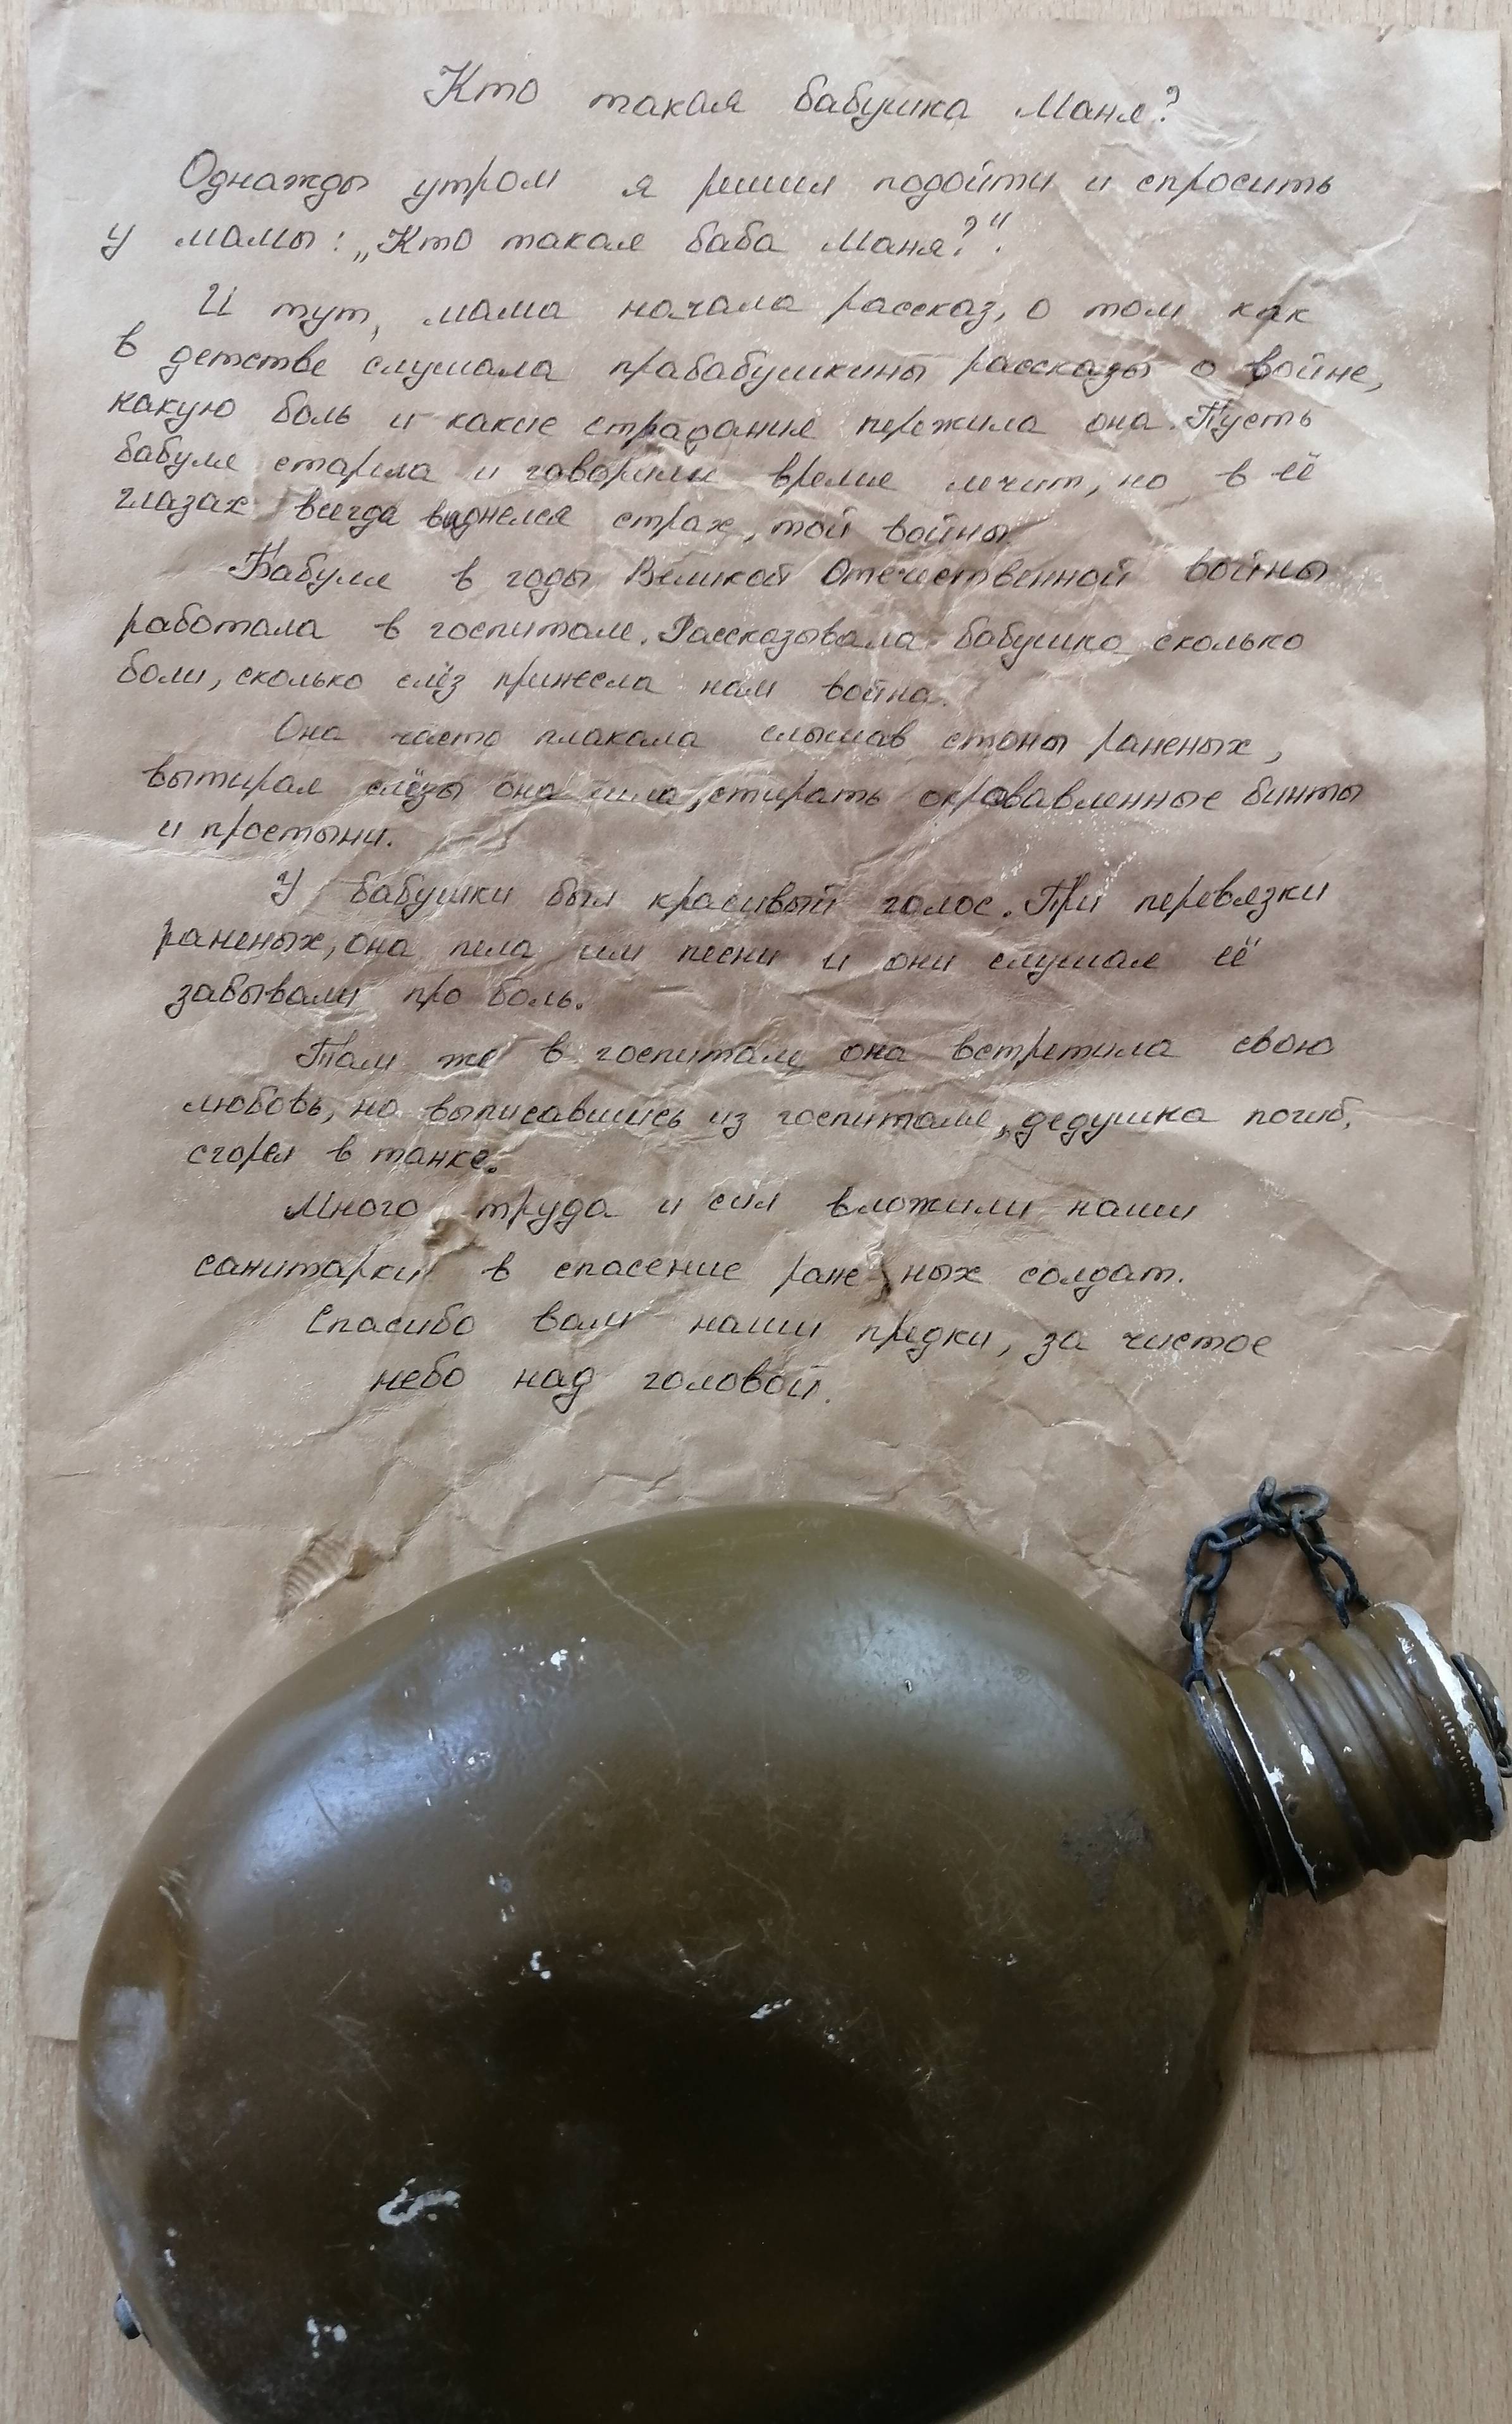 Кто такая бабушка Маня?
Однажды утром я решил подойти и спросить
у мамы: „Кто такая баба Маня?".
И тут, мама начала рассказ, о том как
в детстве слушала прабабушкины рассказы о войне,
какую боль и какие страдания пережила она. Пусть
бабуля старела и говорили время лечит, но в её
глазах всегда виднелся страх, той войны.
Бабуля в годы Великой Отечественной войны
работала в госпитале. Рассказывала бабушка сколько
боли, сколько слёз принесла нам война.
Она часто плакала слышав стоны раненых,
вытирая слёзы она шла, стирать окровавленные бинты
и простыни.
У бабушки был красивый голос. При перевязки
раненых, она пела им песни и они слушая её
забывали про боль.
Там же в госпитале она встретила свою
любовь, но выписавшись из госпиталя, дедушка погиб,
сгорел в танке.
Много труда и сил вложили наши
санитарки в спасение раненых солдат.
Спасибо вам наши предки, за чистое
небо над головой.